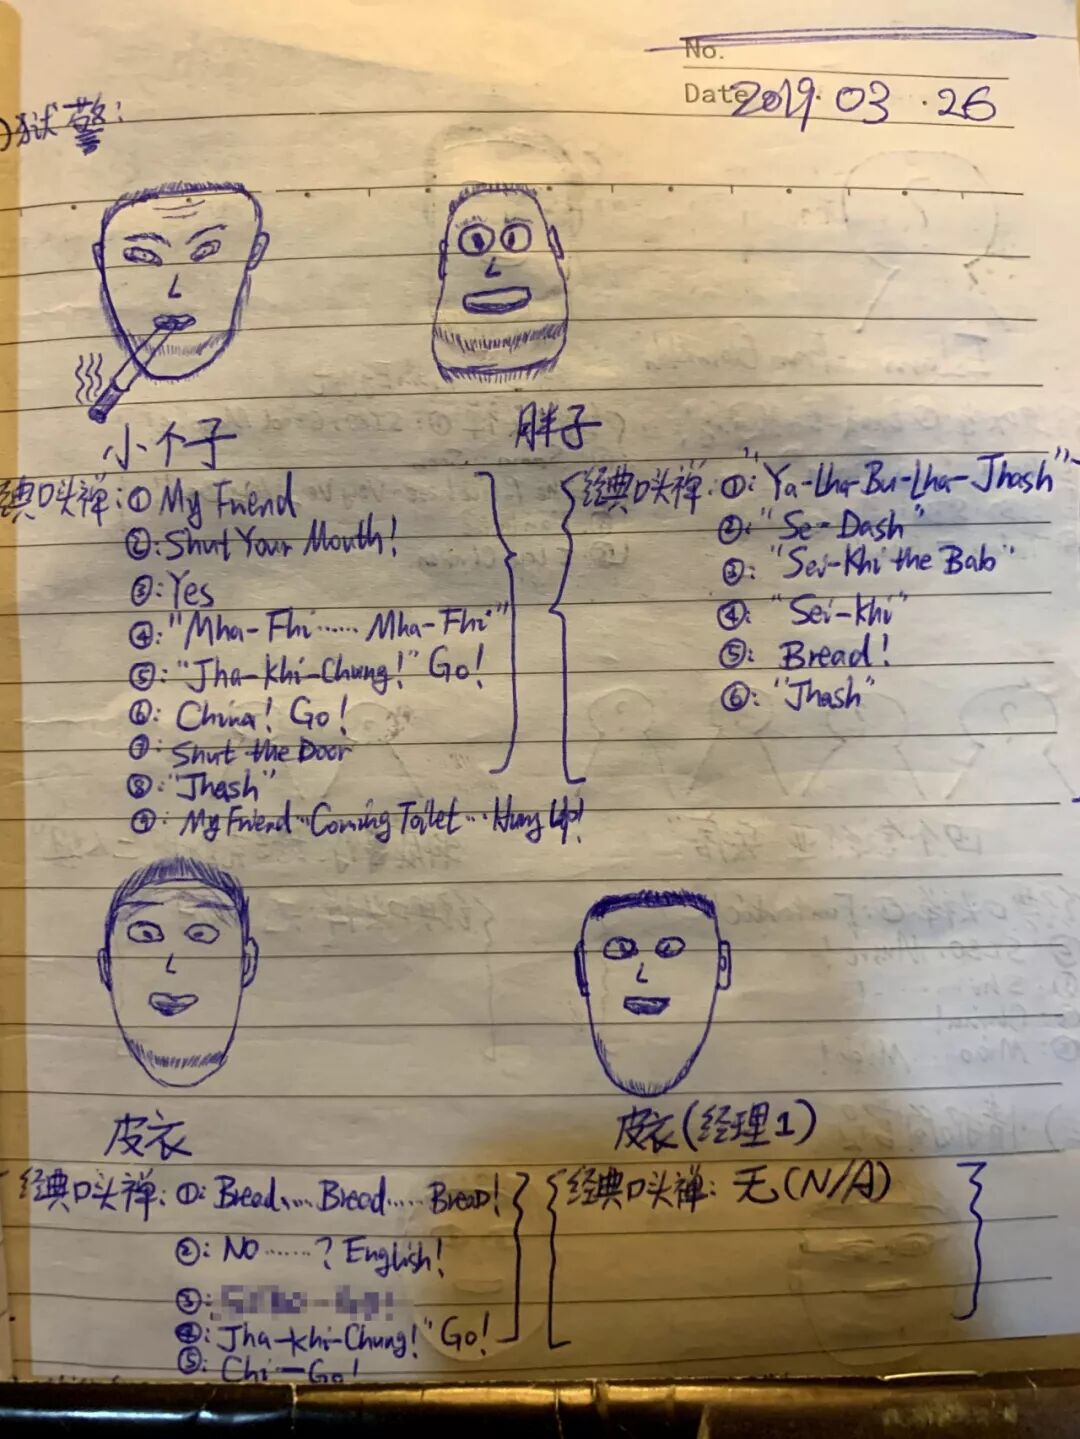 No.
Date 2019.03.26
)狱警:
小个子
胖子
经典口头禅:① My Friend
②: Shut Your Mouth!
③: Yes
④: "Mha-Fhi...... Mha-Fhi"
⑤: "Jha-Khi-Chung!" Go!
⑥: China! Go!
⑦: Shut the Door
⑧: "Jhash"
⑨: My Friend...Coming Toilet...Hurry Up!
经典口头禅:①: "Ya-Lha-Bu-Lha-Jhash"
②: "Se-Dash"
③: "Sei-Khi the Bab"
④: "Sei-Khi"
⑤: Bread!
⑥: "Jhash"
皮衣
皮衣(经理1)
经典口头禅:①: Bread..... Bread..... Bread!
②: No ......? English!
③:
④: Jha-khi-Chung!" Go!
⑤: Chi—Go!
经典口头禅: 无(N/A)